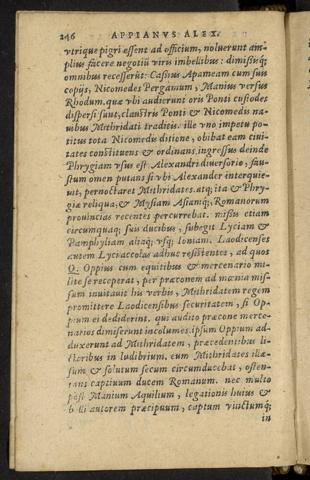 246 APPIANVS ALEX.
vtrique pigri essent ad officium, noluerunt am-
plius facere negotiū viris imbellibus: dimisisq;
omnibus recesserūt: Cassius Apameam cum suis
copijs, Nicomedes Pergamum, Manius versus
Rhodum. quæ vbi audierunt oris Ponti custodes
dispersi sunt, claustris Ponti & Nicomedis na-
uibus Mithridati traditis. ille vno impetu po-
titus tota Nicomedis ditione, obibat eam ciui-
tates constituens & ordinans. ingressus deinde
Phrygiam vsus est Alexandri diuersorio, fau-
stum omen putans si vbi Alexander interquie-
uit, pernoctaret Mithridates. atq; ita & Phry-
giæ reliqua, & Mysiam Asiamq; Romanorum
prouincias recentes percurrebat. misis etiam
circumquaq; suis ducibus, subegit Lyciam &
Pamphyliam aliaq; vsq; Ioniam. Laodicenses
autem Lyci accolas adhuc resistentes, ad quos
Q. Oppius cum equitibus & mercenario mi-
lite se receperat, per præconem ad mœnia mis-
sum inuitauit his verbis, Mithridatem regem
promittere Laodicensibus securitatem, si Op-
pium ei dediderint. qui audito præcone merce-
narios dimiserunt incolumes. ipsum Oppium ad-
duxerunt ad Mithridatem, præcedentibus li-
ctoribus in ludibrium. eum Mithridates illæ-
sum & solutum secum circumducebat, osten-
tans captiuum ducem Romanum. nec multo
post Manium Aquilium, legationis huius &
b lli autorem præcipuum, captum vinctumq;
in